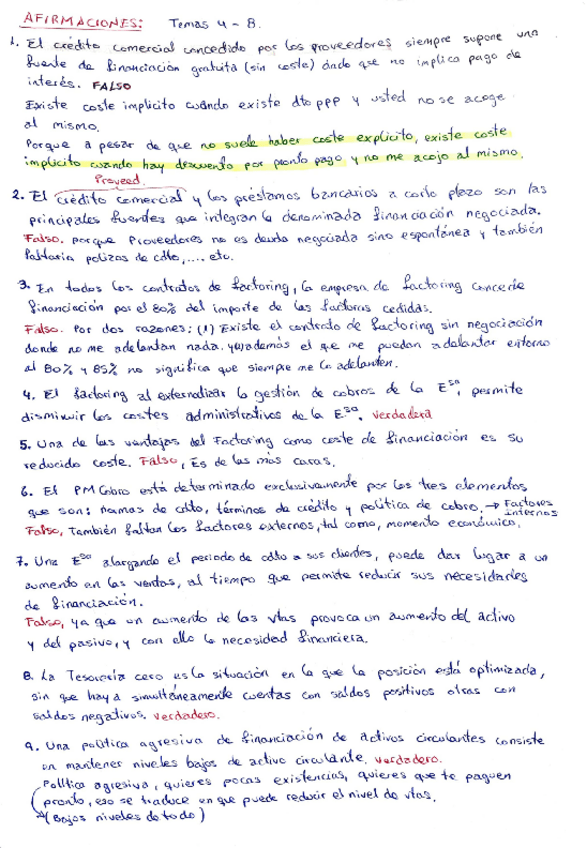 AFIRMACIONES: Temas 4 - 8.
1. El crédito comercial concedido por los proveedores siempre supone una
fuente de financiación gratuita (sin coste) dado que no implica pago de
interés. FALSO
Existe coste implicito cuándo existe dto ppp y usted no se acoge
al mismo.
Porque a pesar de que no suele haber coste explícito, existe coste
implícito cuando hay descuento por pronto pago y no me acojo al mismo.
Proveed.
2. El crédito comercial y los préstamos bancarios a corto plazo son las
principales fuentes que integran la denominada financiación negociada.
Falso. porque Proveedores no es deuda negociada sino espontánea y también
faltaría polizas de cdto, .... etc.
3. En todos los contratos de factoring, la empresa de factoring concede
financiación por el 80% del importe de las facturas cedidas.
Falso. Por dos razones: (1) Existe el contrato de factoring sin negociación
donde no me adelantan nada. y (2) además el que me puedan adelantar entorno
al 80% y 85% no significa que siempre me lo adelanten.
4. El factoring al externalizar la gestión de cobros de la Eˢᵃ, permite
disminuir los costes administrativos de la Eˢᵃ. Verdadera
5. Una de las ventajas del Factoring como coste de financiación es su
reducido coste. Falso, Es de las más caras.
6. El PMCobro está determinado exclusivamente por los tres elementos
que son: normas de cdto, términos de crédito y política de cobro. → Factores internos
Falso, También faltan los factores externos, tal como, momento económico.
7. Una Eˢᵃ alargando el periodo de cdto a sus clientes, puede dar lugar a un
aumento en las ventas, al tiempo que permite reducir sus necesidades
de financiación.
Falso, ya que un aumento de las vtas provoca un aumento del activo
y del pasivo, y con ello la necesidad financiera.
8. La Tesorería cero es la situación en la que la posición está optimizada,
sin que haya simultáneamente cuentas con saldos positivos otras con
saldos negativos. verdadero.
9. Una política agresiva de financiación de activos circulantes consiste
en mantener niveles bajos de activo circulante. verdadero.
Política agresiva, quieres pocas existencias, quieres que te paguen
pronto, eso se traduce en que puede reducir el nivel de vtas.
(Bajos niveles de todo)